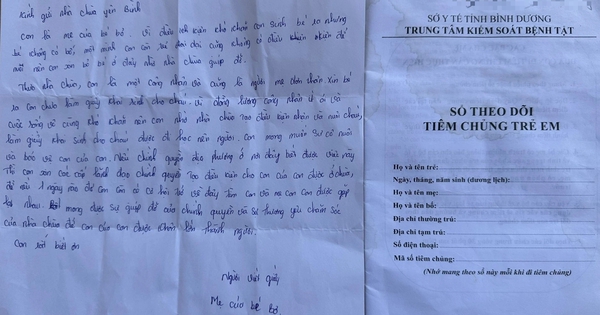 Kính gửi nhà chùa yên Bình
Con là mẹ của bé bơ. vì điều kiện khó khăn con sinh bé ra nhưng
bé không có bố, một mình con cũng không có điều kiện để
nuôi nên con bỏ bé ở đây nhờ nhà chùa giúp đỡ.
Thưa nhà chùa, con là một công nhân và cũng là người mẹ đơn thân sinh bé
ra con chưa làm giấy khai sinh cho cháu. vì đồng lương công nhân ít ỏi và
cuộc sống vô cùng khó khăn nên con nhờ nhà chùa tạo điều kiện nhận và nuôi cháu,
làm giấy khai sinh cho cháu được đi học nên người. con mong muốn sư cô nuôi
và bảo vệ con của con. Nếu chính quyền địa phương ở nơi đây biết được
thì con xin các cấp lãnh đạo chính quyền tạo điều kiện cho con của con được ở chùa,
để sau 1 ngày nào đó con có cơ hội về đây tìm con và mẹ con con được gặp
lại nhau. mong được sự giúp đỡ của chính quyền và sự thương yêu chăm sóc
của nhà chùa để con của con được thành người.
Con rất biết ơn
Người viết giấy
Mẹ của bé bơ.
SỞ Y TẾ TỈNH BÌNH DƯƠNG
TRUNG TÂM KIỂM SOÁT BỆNH TẬT
SỔ THEO DÕI
TIÊM CHỦNG TRẺ EM
Họ và tên trẻ:
Ngày, tháng, năm sinh (dương lịch):
Họ và tên mẹ:
Họ và tên bố:
Địa chỉ thường trú:
Địa chỉ tạm trú:
Số điện thoại:
Mã số tiêm chủng:
(Nhớ mang theo sổ này mỗi khi đi tiêm chủng)